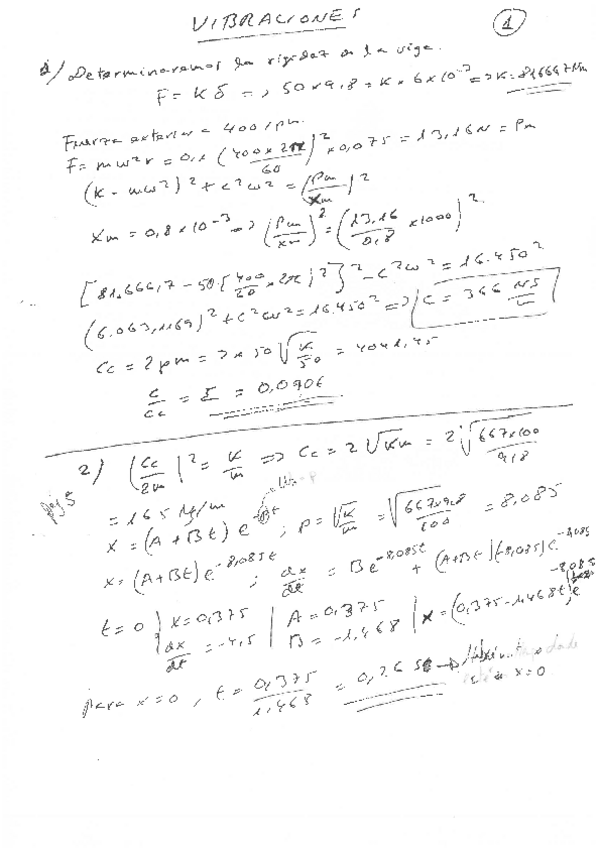 VIBRACIONES
1
1/ Determinaremos la rigidez de la viga.
F = K δ => 50 x 9,8 = K x 6 x 10⁻³ => K = 81.666,7 N/m
Fuerza exterior a 400 rpm.
F = mω²r = 0,1 (400 x 2π / 60)² x 0,075 = 13,16 N = Pm
(K - mω²)² + c²ω² = (Pm / Xm)²
Xm = 0,8 x 10⁻³ => (Pm / xm)² = (13,16 / 0,8 x 1000)²
[81.666,7 - 50 (400 / 60 x 2π)²]² - c²ω² = 16.450²
(6.063,1169)² + c²ω² = 16.450² => c = 366 NS/m
Cc = 2pm = 2 x 50 √(K / 50) = 4041,45
c / cc = Σ = 0,0906
2) (Cc / 2m)² = K / m => Cc = 2 √Km = 2 √(667 x 100 / 9,8)
= 165
x = (A + Bt) e ; p = √(K / m) = √(667 x 9,8 / 100) = 8,085
x = (A + Bt) e^-8,085t ; dx / dt = B e^-8,085t + (A + Bt)(-8,085) e^-8,085
t = 0 | x = 0,375 | A = 0,375 | x = (0,375 - 1,468t) e^-8,085
dx / dt = -4,5 | B = -1,468
para x = 0, t = 0,375 / 1,468 = 0,26 s
x = 0